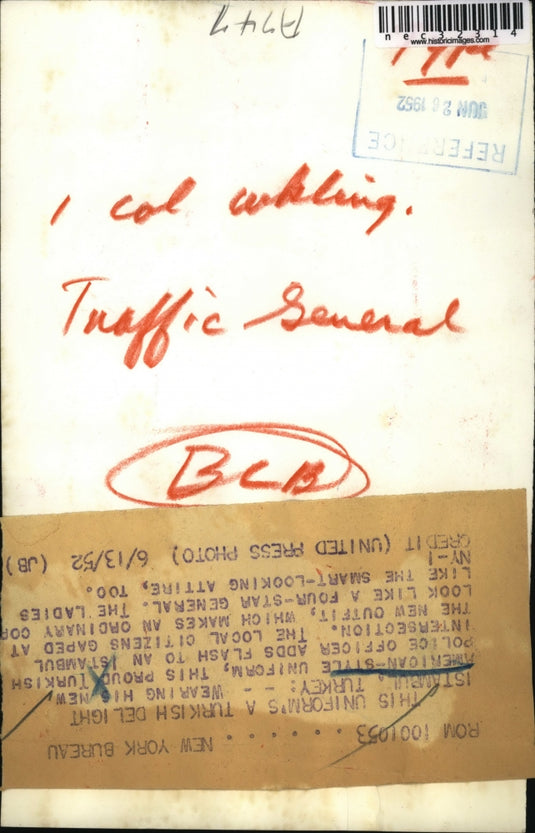 A747
nec32314
www.historicimages.com
JUN 26 1952
REFERENCE
1 col
Traffic General
BCB
ROM 1001053 . . . . . . . NEW YORK BUREAU
THIS UNIFORM'S A TURKISH DELIGHT
ISTANBUL, TURKEY: - - WEARING HIS NEW,
AMERICAN-STYLE UNIFORM, THIS PROUD TURKISH
POLICE OFFICER ADDS FLASH TO AN ISTANBUL
INTERSECTION. THE LOCAL CITIZENS GAPED AT
THE NEW OUTFIT, WHICH MAKES AN ORDINARY COP
LOOK LIKE A FOUR-STAR GENERAL. THE LADIES
LIKE THE SMART-LOOKING ATTIRE, TOO.
NY-1
CREDIT (UNITED PRESS PHOTO) 6/13/52 (JB)